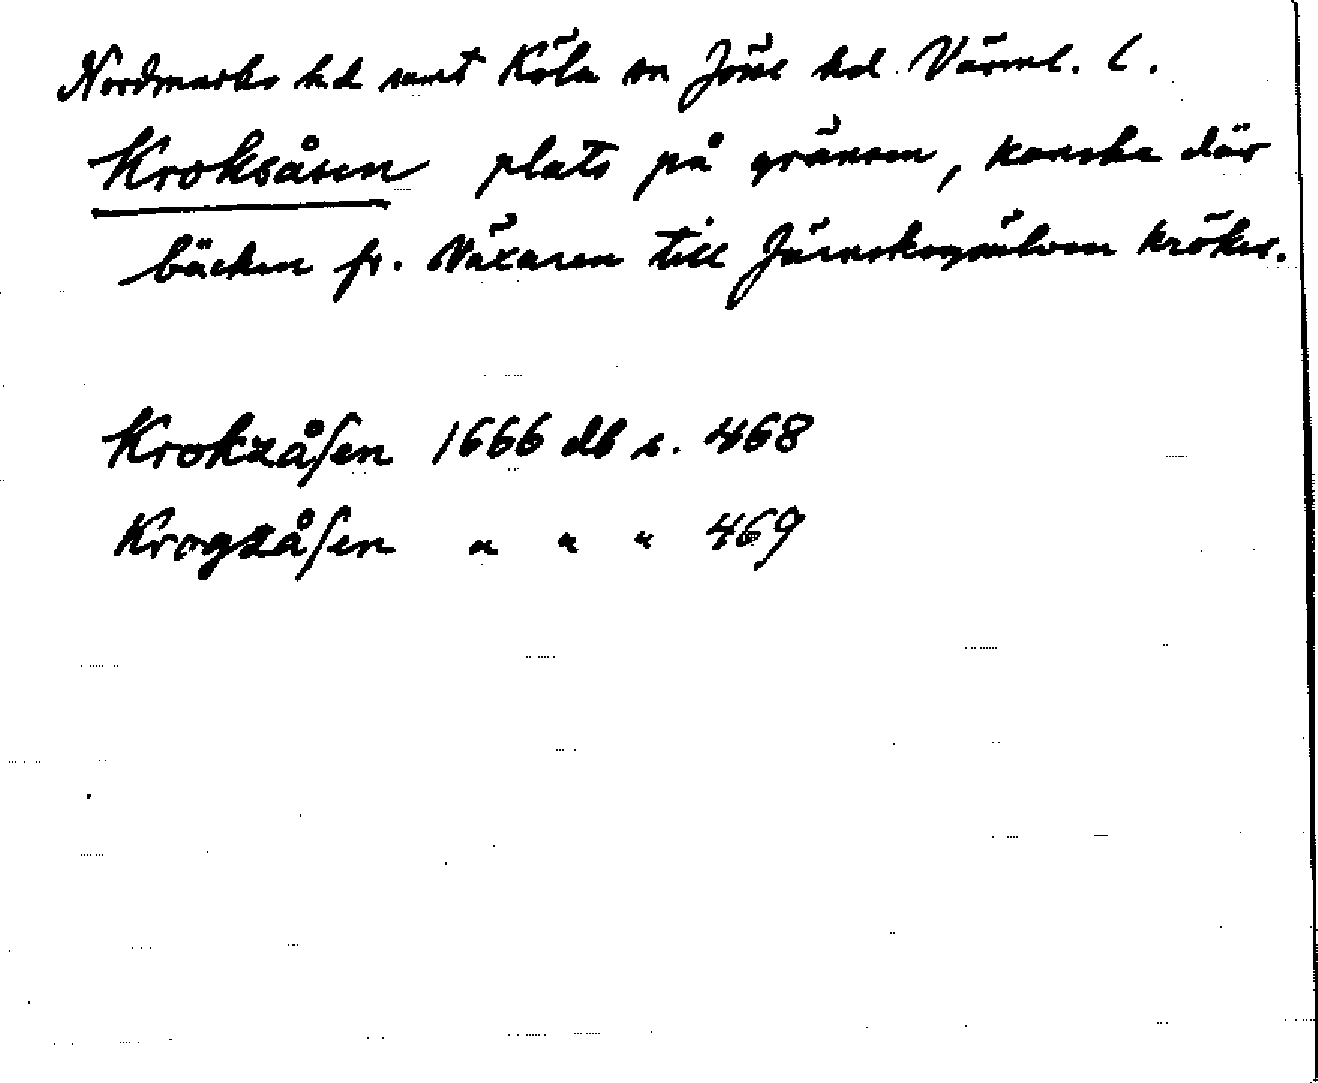 Nordmarks hd samt Köla sn Jöse hd Värml. l.
Kroksåsen plats på gränsen, kanske där
bäcken fr. Näxaren till Järnskogsälven kröker.
Krokzåſen 1666 db s. 468
Krogzåſen " " " 469